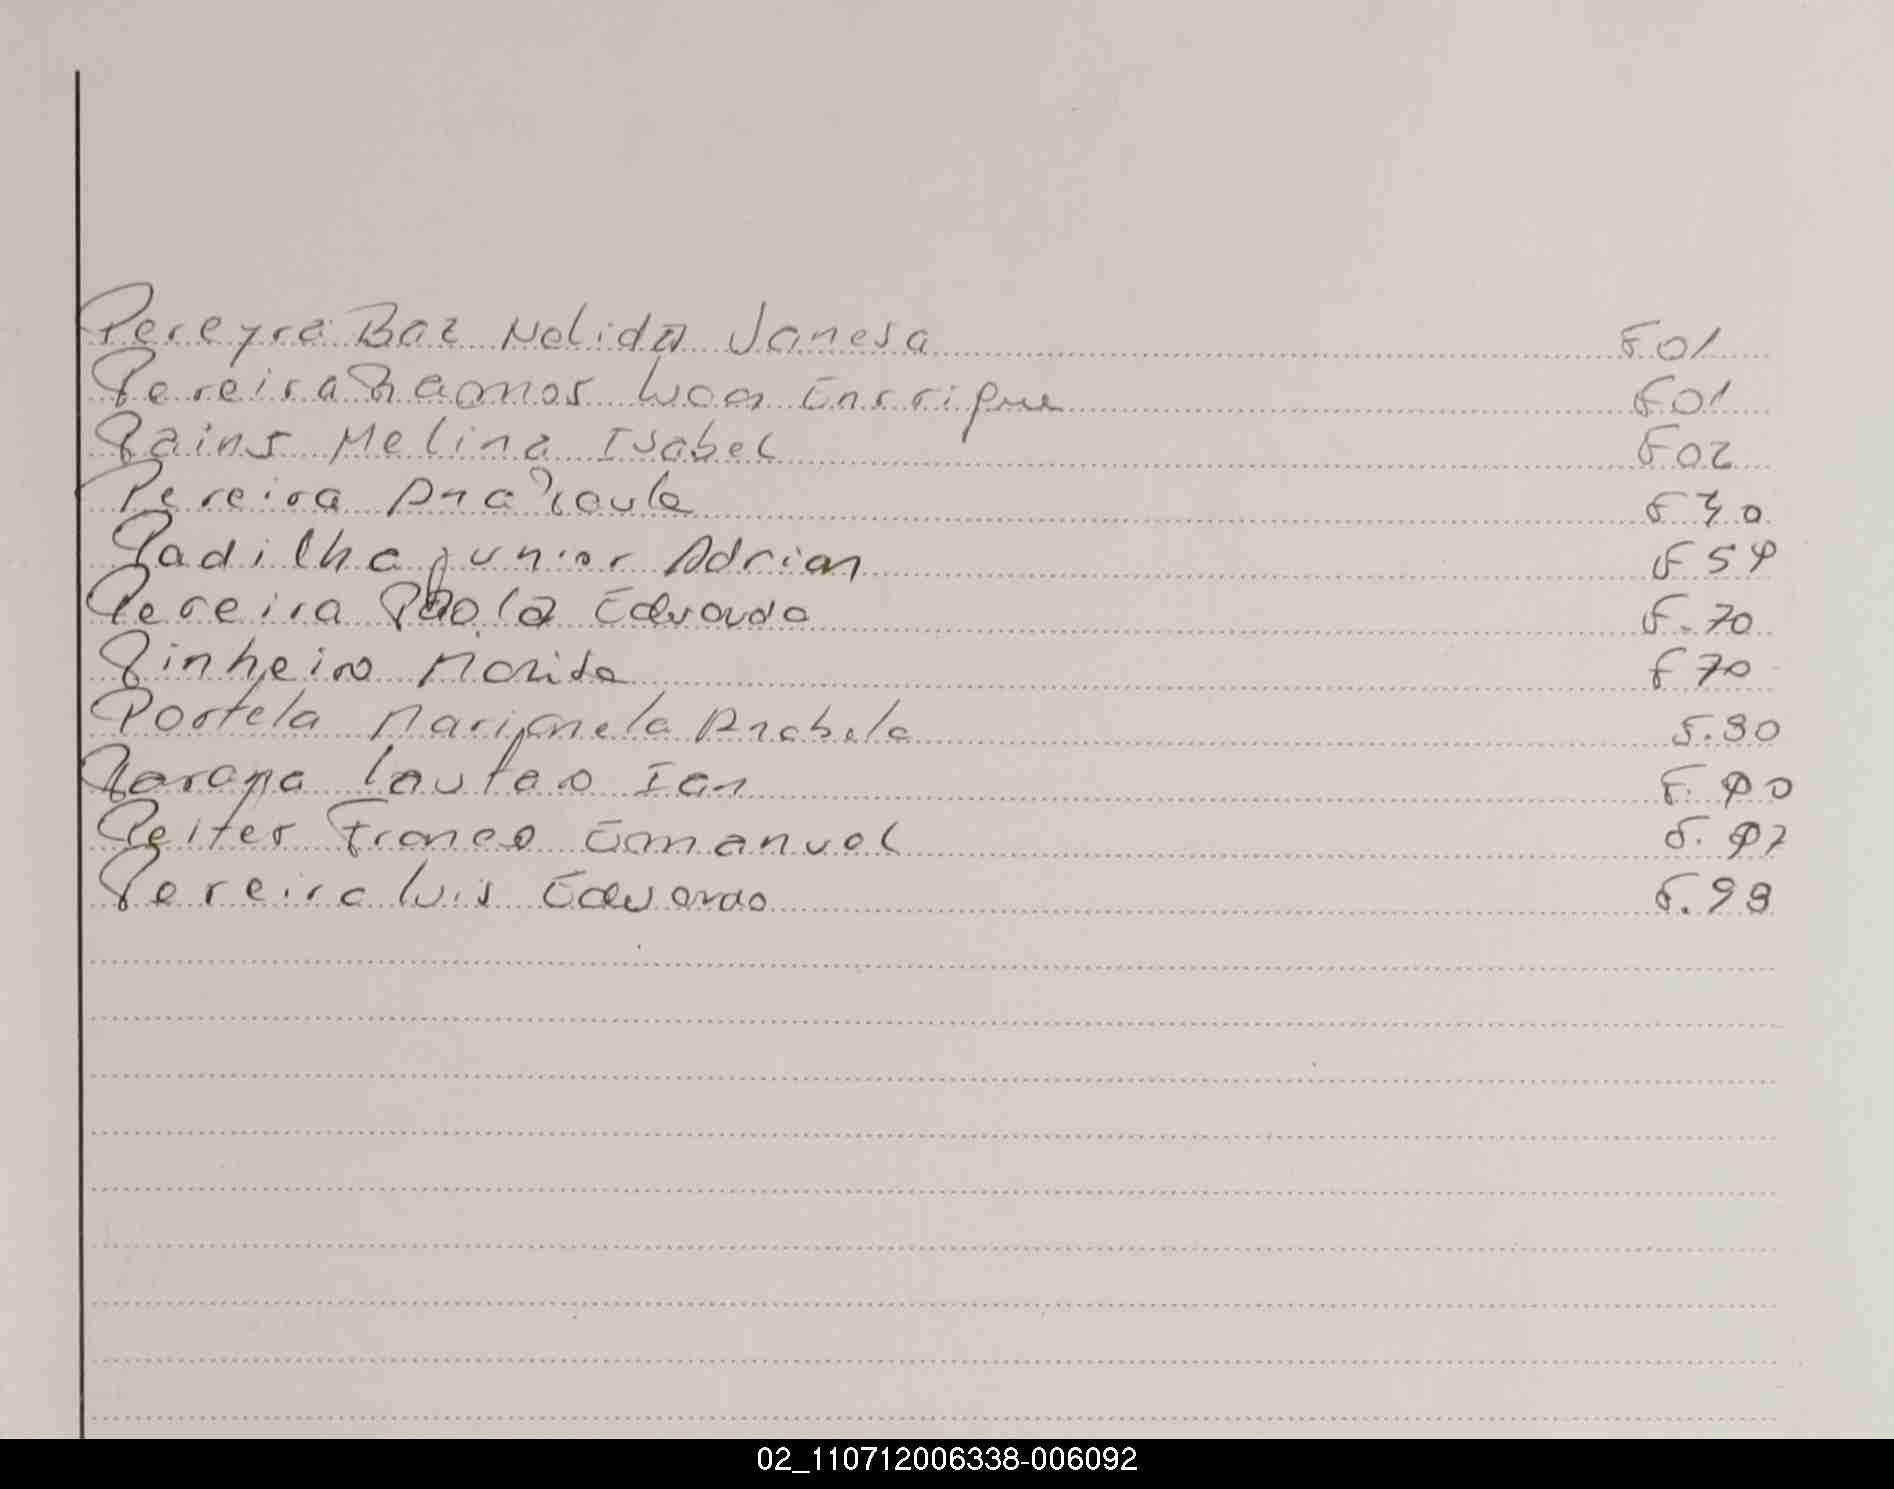 Pereyra Baz Nelida Vanesa F 01
Pereira Ramos Luan Enrrique F01
Pains Melina Isabel F02
Pereira Ana Paula F 40
Padilha junior Adrian F 54
Pereira Paola Eduarda F. 70
Pinheiro Marisa F 70
Portela Marianela Anabela F. 80
Parapa Lautaro Ian F. 90
Peiter Franco Emanuel F. 97
Pereira Luis Eduardo F. 98
02_110712006338-006092